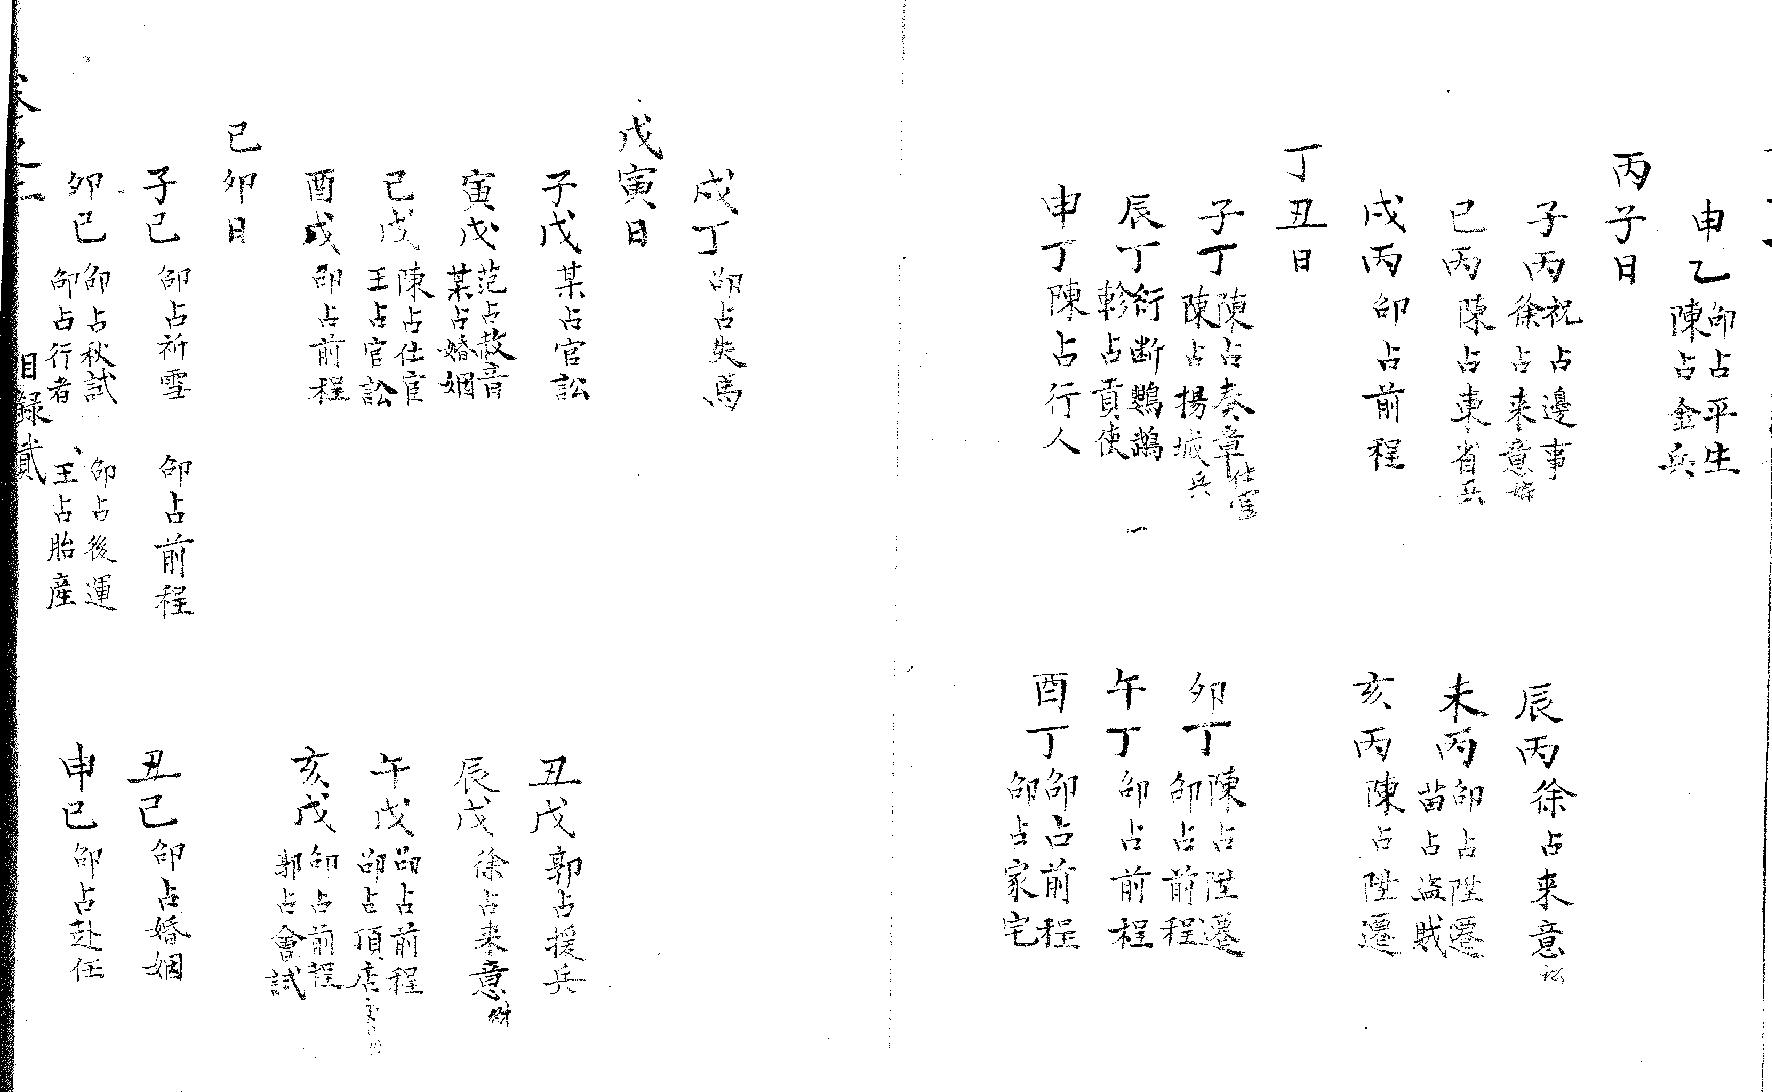 申乙 邵占平生 陳占金兵
丙子日
子丙 祝占邊事 徐占来意
辰丙 徐占来意訟
巳丙 陳占東省兵
未丙 邵占陞遷 苗占盜賊
戌丙 邵占前程
亥丙 陳占陞遷
丁丑日
子丁 陳占奏章仕宦 陳占揚城兵
卯丁 陳占陞遷 邵占前程
辰丁 衍断鸚鵡 軫占貢使
午丁 邵占前程
申丁 陳占行人
酉丁 邵占前程 邵占家宅
戌丁 邵占失馬
戊寅日
子戊 某占官訟
丑戊 郭占援兵
寅戊 范占赦音 某占婚姻
辰戊 徐占来意財
巳戊 陳占仕宦 王占官訟
午戊 邵占前程 邵占頂店
酉戊 邵占前程
亥戊 邵占前程 郭占會試
己卯日
子己 邵占祈雪 邵占前程
丑己 邵占婚姻
卯己 邵占秋試 邵占行者 邵占後運 王占胎產
申己 邵占赴任
卷之二 目録貳